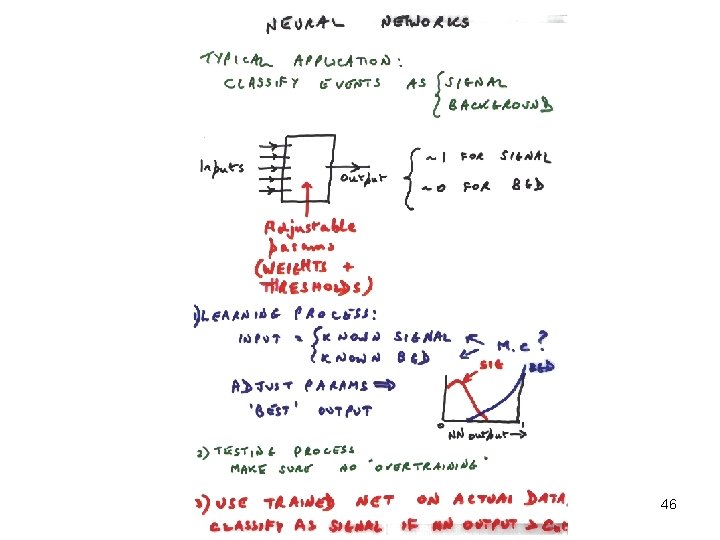 NEURAL NETWORKS
TYPICAL APPLICATION:
CLASSIFY EVENTS AS { SIGNAL
BACKGROUND
Inputs
output
{ ~1 FOR SIGNAL
~0 FOR BGD
Adjustable
params
(WEIGHTS +
THRESHOLDS)
1) LEARNING PROCESS:
INPUT = { KNOWN SIGNAL
KNOWN BGD
M.C?
ADJUST PARAMS ⇒
'BEST' OUTPUT
SIG
BGD
0
1
NN output →
2) TESTING PROCESS
MAKE SURE NO "OVERTRAINING"
3) USE TRAINED NET ON ACTUAL DATA.
CLASSIFY AS SIGNAL IF NN OUTPUT > Cut
46